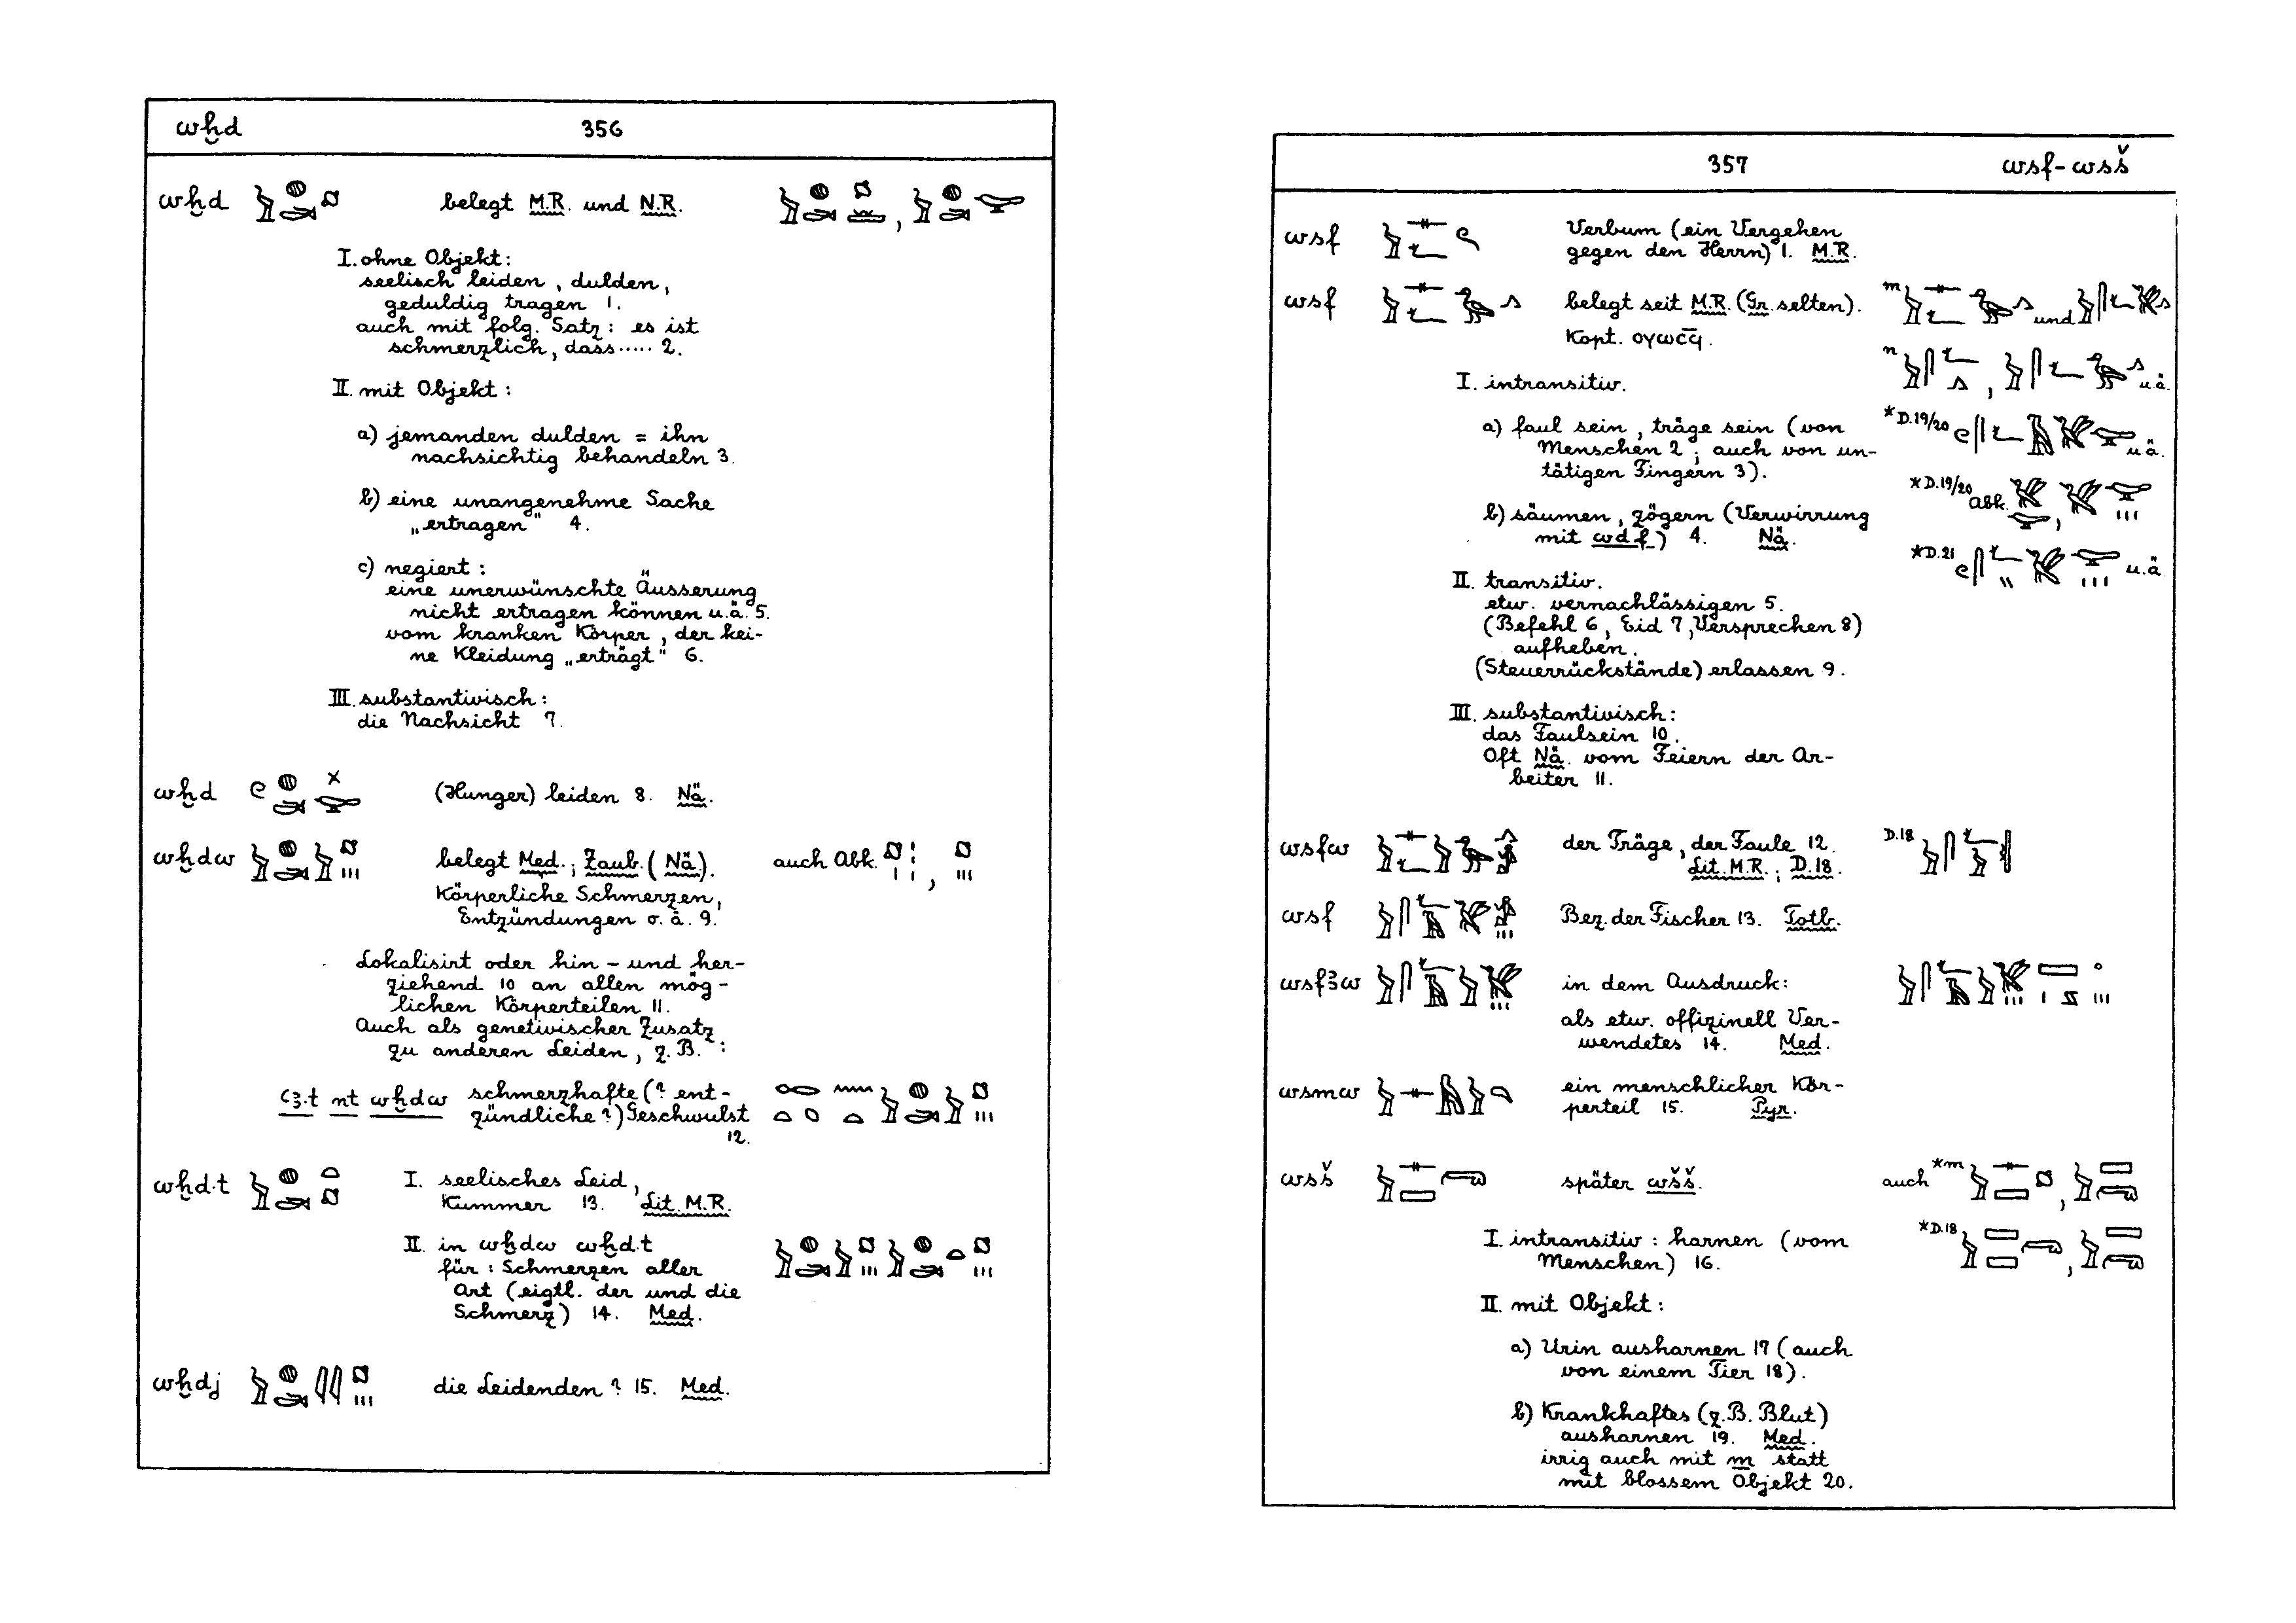 wḫd 356
wḫd belegt M.R. und N.R. ,
I. ohne Objekt:
seelisch leiden, dulden,
geduldig tragen 1.
auch mit folg. Satz: es ist
schmerzlich, dass..... 2.
II. mit Objekt:
a) jemanden dulden = ihn
nachsichtig behandeln 3.
b) eine unangenehme Sache
„ertragen" 4.
c) negiert:
eine unerwünschte Äusserung
nicht ertragen können u.ä. 5.
vom kranken Körper, der kei-
ne Kleidung „erträgt" 6.
III. substantivisch:
die Nachsicht 7.
wḫd (Hunger) leiden 8. Nä.
wḫdw belegt Med.; Zaub. (Nä). auch Abk. ,
Körperliche Schmerzen,
Entzündungen o.ä. 9.
Lokalisirt oder hin- und her-
ziehend 10 an allen mög-
lichen Körperteilen 11.
Auch als genetivischer Zusatz
zu anderen Leiden, z.B.:
ꜥꜣ.t nt wḫdw schmerzhafte (? ent-
zündliche?) Geschwulst
12.
wḫd.t I. seelisches Leid,
Kummer 13. Lit. M.R.
II. in wḫdw wḫd.t
für: Schmerzen aller
Art (eigtl. der und die
Schmerz) 14. Med.
wḫdj die Leidenden? 15. Med.
357 wsf-wsš
wsf Verbum (ein Vergehen
gegen den Herrn) 1. M.R.
wsf belegt seit M.R. (Gr. selten). m und
Kopt. ⲟⲩⲱⲥϥ̅.
n , u.ä.
I. intransitiv.
a) faul sein, träge sein (von
Menschen 2; auch von un-
tätigen Fingern 3).
*D.19/20 u.ä.
b) säumen, zögern (Verwirrung
mit wdf) 4. Nä.
*D.19/20 Abk. ,
*D.21 u.ä.
II. transitiv.
etw. vernachlässigen 5.
(Befehl 6, Eid 7, Versprechen 8)
aufheben.
(Steuerrückstände) erlassen 9.
III. substantivisch:
das Faulsein 10.
Oft Nä. vom Feiern der Ar-
beiter 11.
wsfw der Träge, der Faule 12. D.18
Lit. M.R.; D.18.
wsf Bez. der Fischer 13. Totb.
wsfꜣw in dem Ausdruck:
als etw. offizinell Ver-
wendetes 14. Med.
wsmw ein menschlicher Kör-
perteil 15. Pyr.
wsš später wšš. auch *m ,
I. intransitiv: harnen (vom
Menschen) 16.
*D.18 ,
II. mit Objekt:
a) Urin ausharnen 17 (auch
von einem Tier 18).
b) Krankhaftes (z.B. Blut)
ausharnen 19. Med.
irrig auch mit m statt
mit blossem Objekt 20.